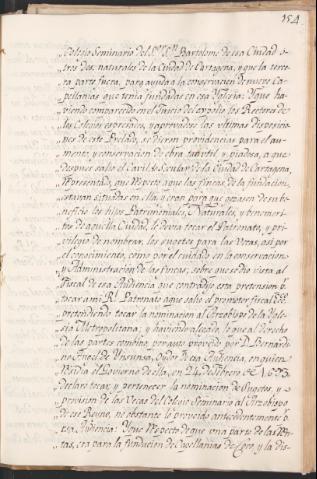 154
Colegio Seminario del Sr. Sn. Bartolome de esa Ciudad o-
tros dos naturales de la Ciudad de Cartagena, y que la terce-
ra parte fuera, para ayuda a la conservacion de nueve Ca-
pellanias que tenia fundadas en esa Yglesia: Y que ha-
viendo comparecido en el Juicio de expolio los Rectores de
los Colegios expresados, y aprovadose las ultimas disposicio-
nes de este Prelado, se dieron providencias para el au-
mento, y conservacion de obra tan util, y piadosa, a que
despues salio el Cavildo Secular de la Ciudad de Cartagena,
representado, que respecto a que las fincas de la fundacion,
estavan situadas en ella, y eran para que gozasen de su be-
neficio los hijos Patrimoniales, Naturales, y beneméri-
tos de aquella Ciudad, le devia tocar el Patronato, y pri-
vilegio de nombrar, los sugetos para las Vecas, asi por
el conocimiento, como por el cuidado en la conservacion,
y Administracion de las fincas; sobre que se dio vista al
Fiscal de esa Audiencia que contradijo esta pretension
tocar a mi Rl. Patronato a que salio el promotor fiscal
pretendiendo tocar la nominacion al Arzobispo de la Ygle-
sia Metropolitana; y haviendo alegado, lo que al derecho
de las partes combino, por auto proveido por D. Bernardi-
no Angel de Ysunsa, Oydor de esa Audiencia, en quien
residia el Govierno de ella, en 24 de Febrero de
declaro tocar, y pertenecer la nominacion de Sugetos, y
provision de las Vecas del Colegio Seminario al Arzobispo
de ese Reyno, no obstante lo proveido antecedentemente
esa Audiencia: Y que respecto de que una parte de las Ren-
tas, era para la fundacion de Capellanias de Coro, y la dis-